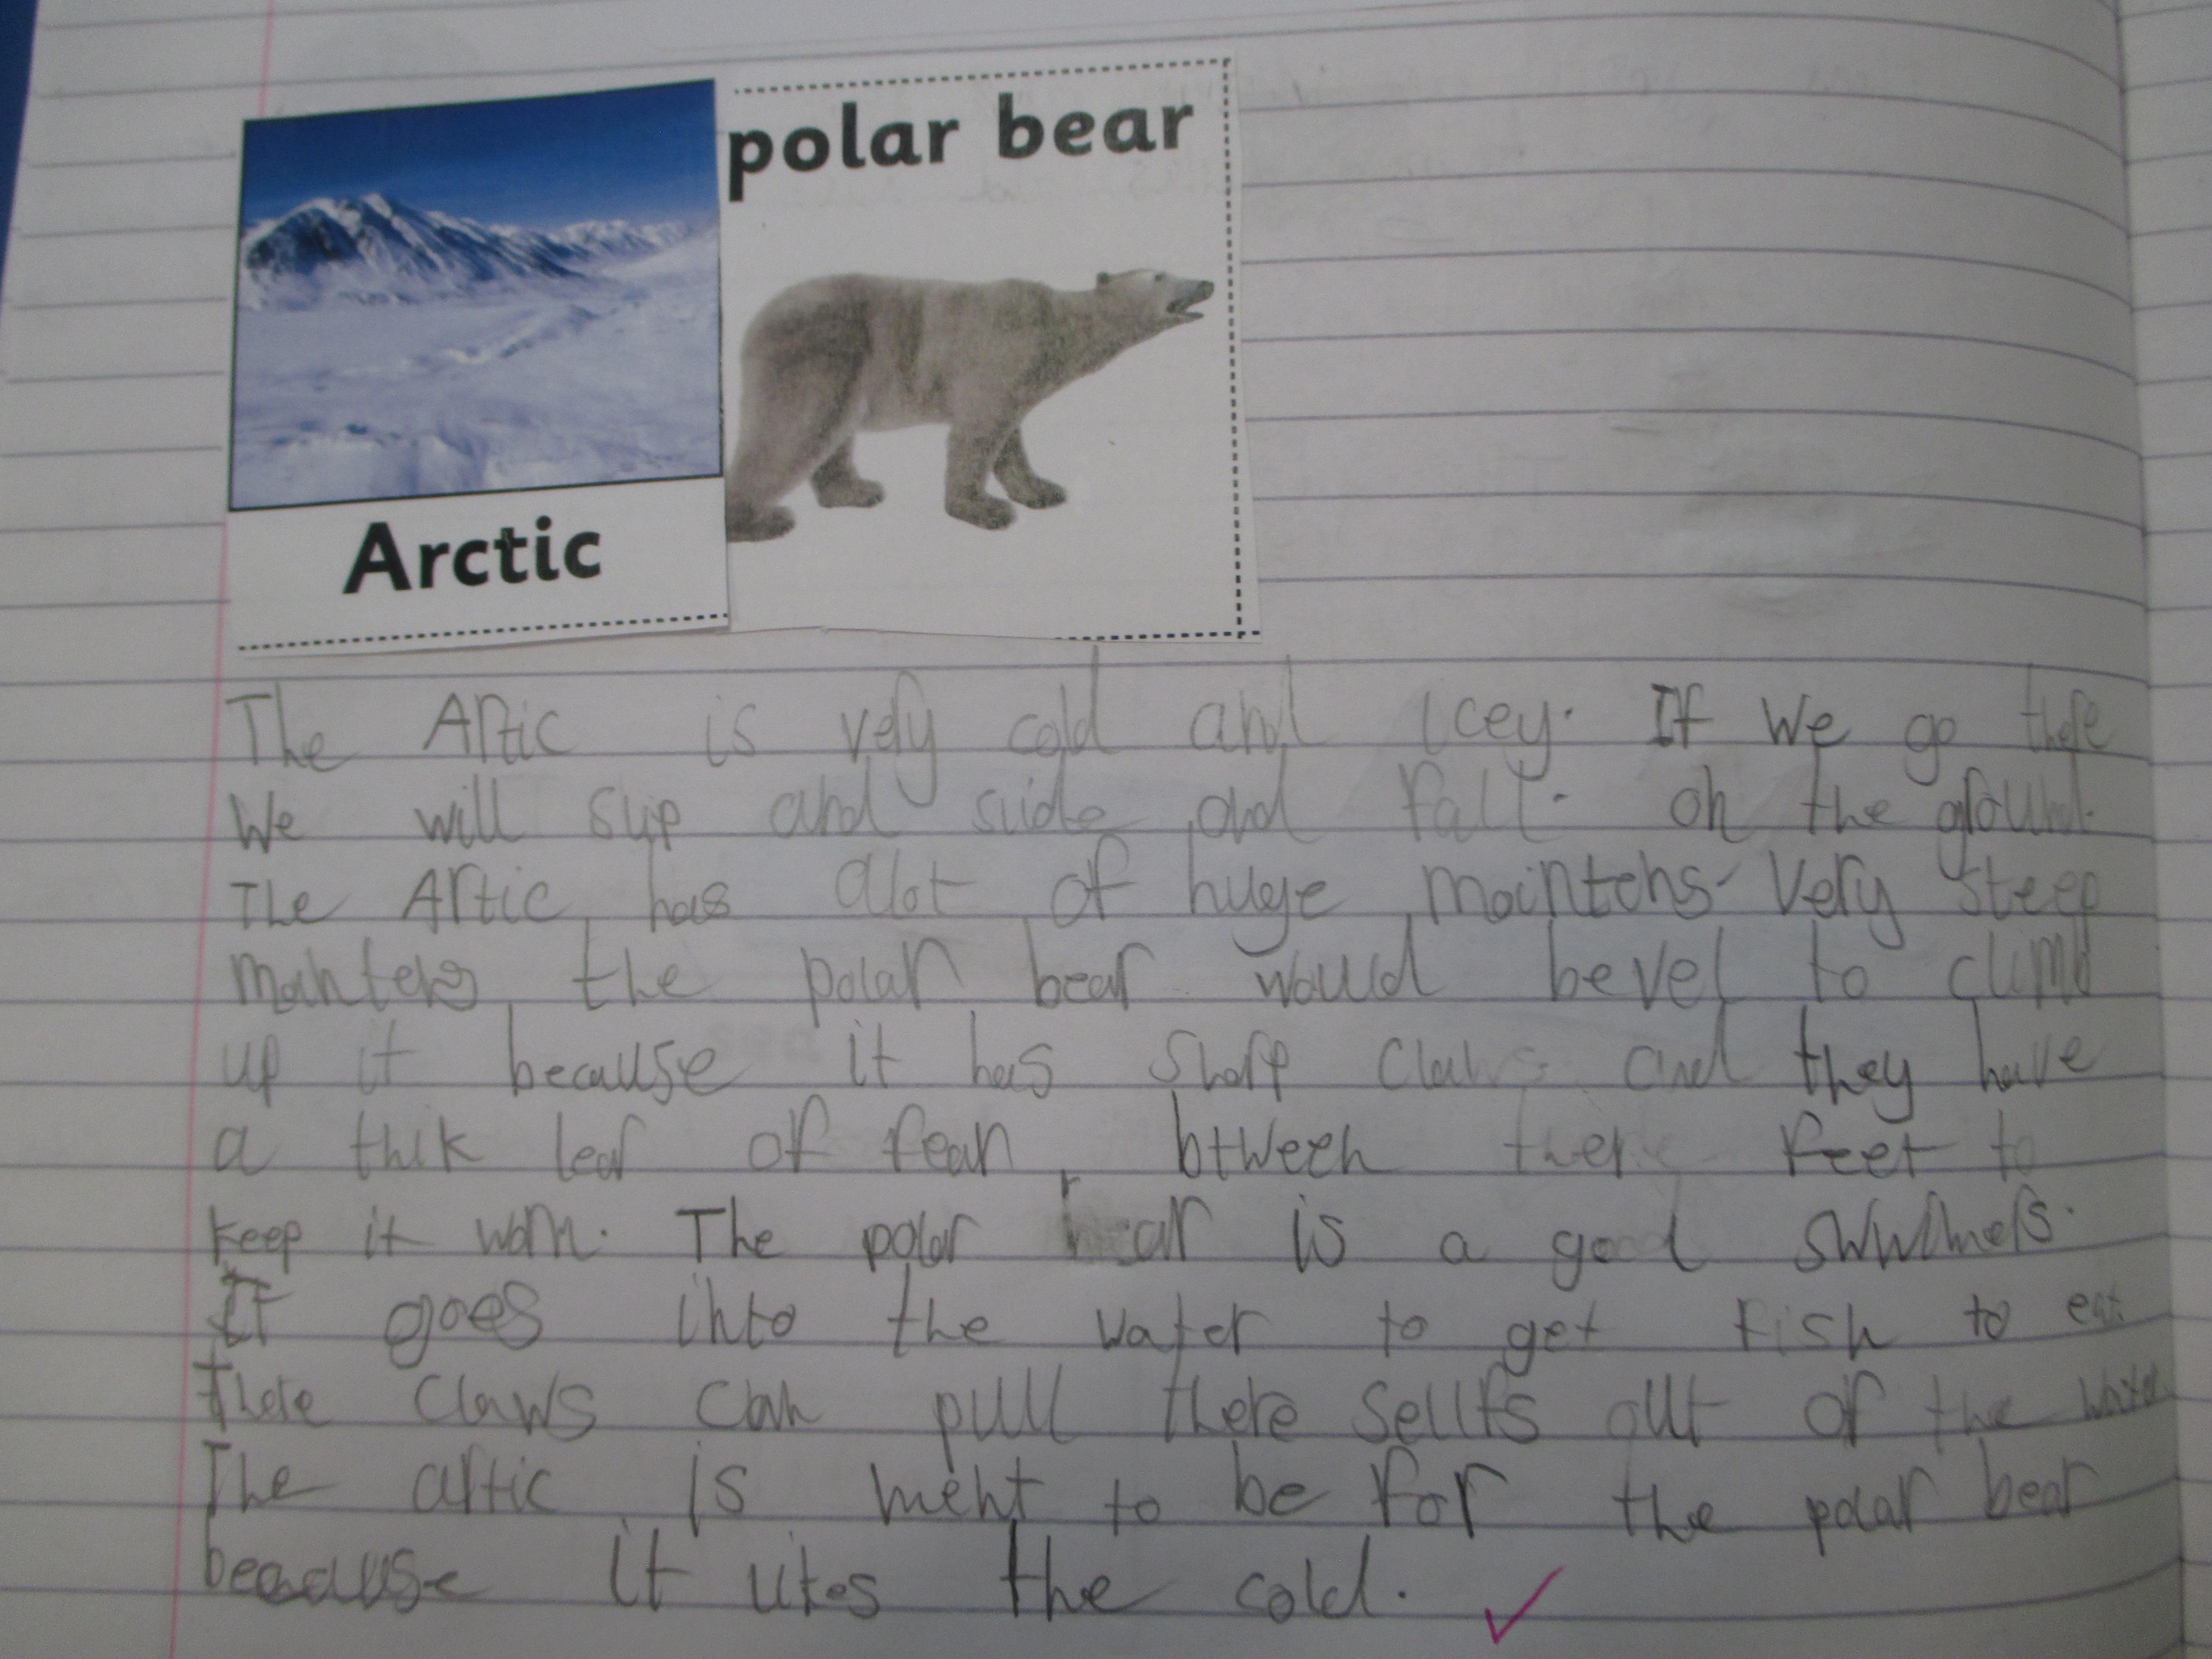 polar bear
Arctic
The Artic is very cold and icey. If we go there
we will slip and slide and fall. on the ground.
The Artic has alot of huge mointens. Very steep
mantens the polar bear would bevel to climb
up it because it has sharp claws and they have
a thik lear of fear btween there feet to
keep it worm. The polar bear is a good swimers.
It goes into the water to get fish to eat.
there claws can pull there sellfs out of the water
The artic is ment to be for the polar bear
because it likes the cold.